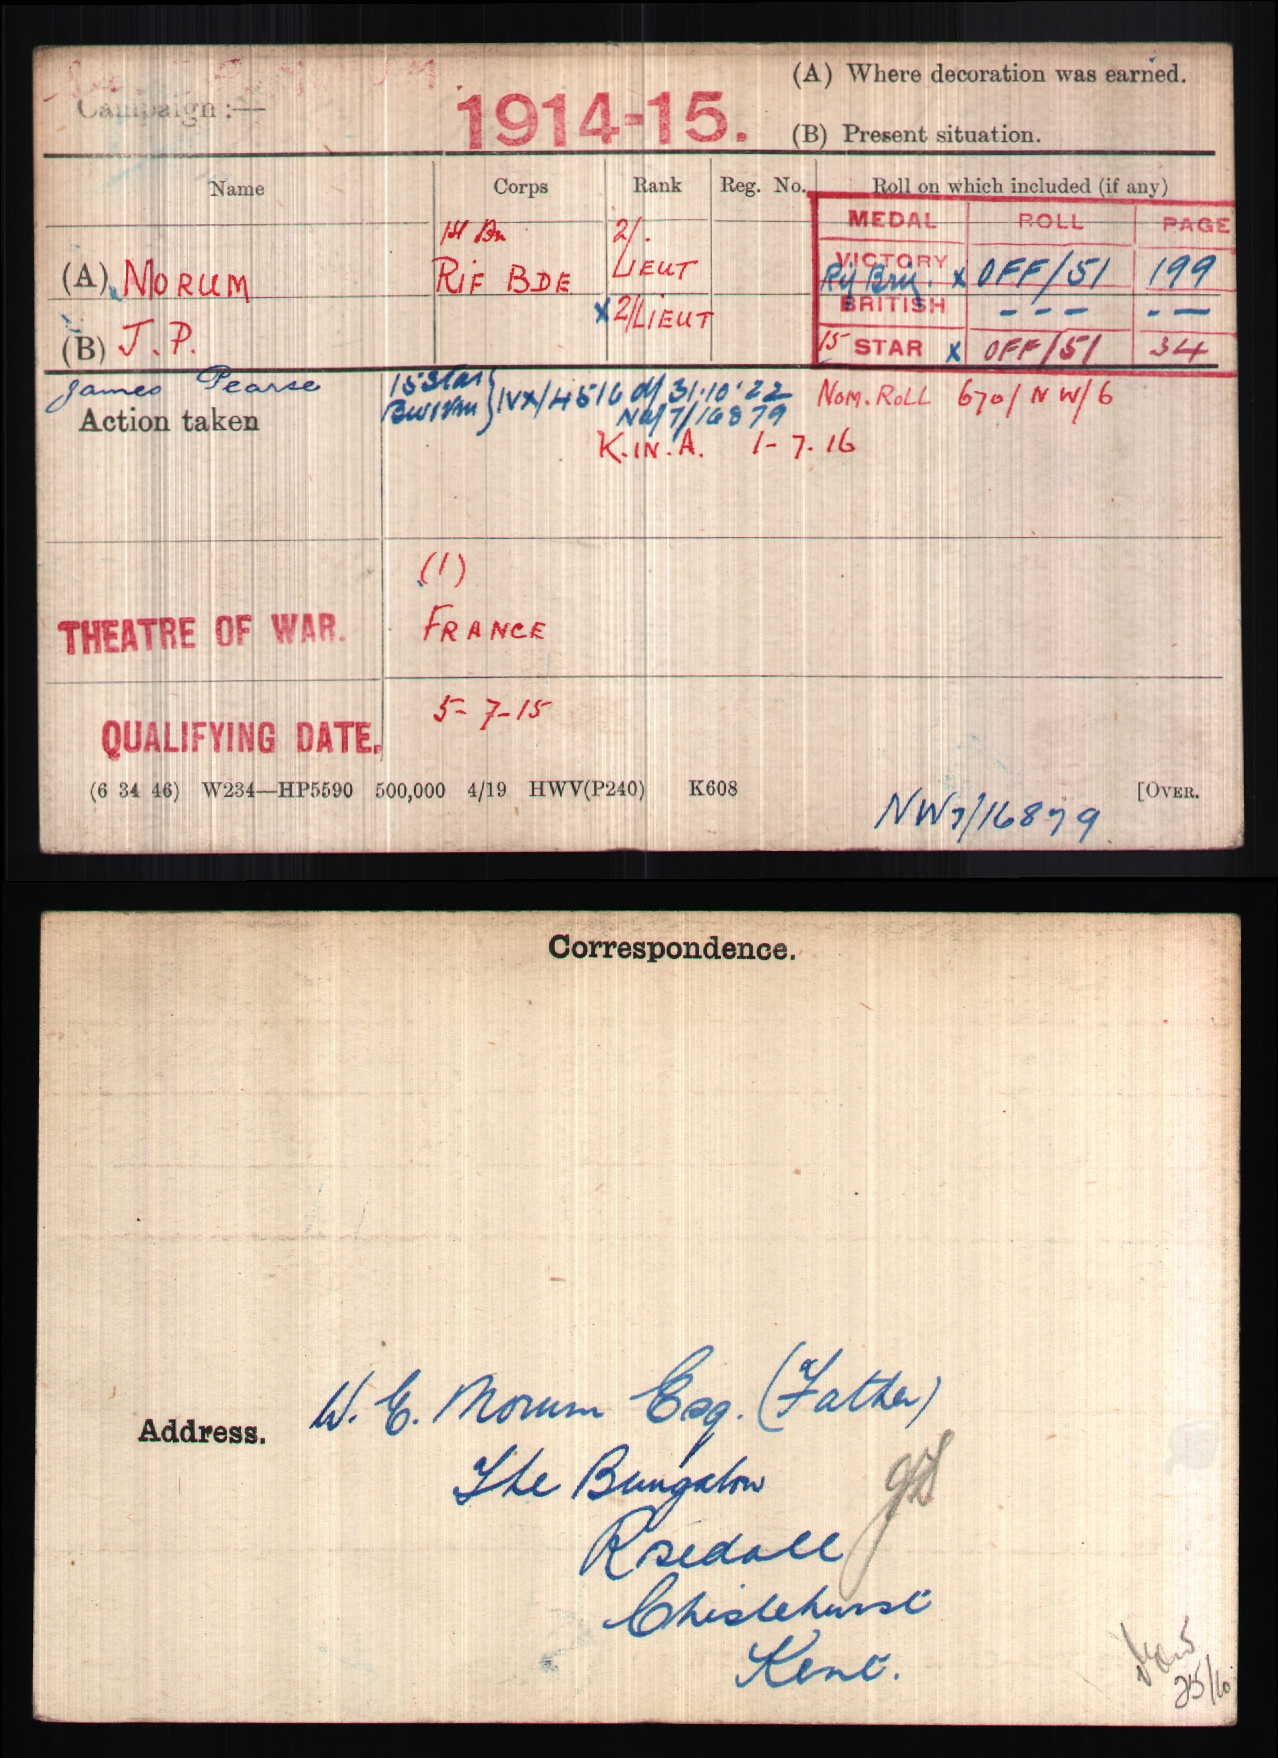 Campaign :—
1914-15.
(A) Where decoration was earned.
(B) Present situation.
Name Corps Rank Reg. No. Roll on which included (if any)
MEDAL ROLL PAGE
1st Bn 2/.
(A) MORUM RIF BDE LIEUT
VICTORY OFF/51 199
Rif Brig. x
x 2/LIEUT
BRITISH - - - - -
(B) J. P.
15 STAR x OFF/51 34
James Pearse
Action taken
15 Star
BW&VM } IVX/4516 d/ 31·10·22
NW/7/16879
NOM. ROLL 670/NW/6
K.IN.A. 1-7-16
(1)
THEATRE OF WAR. FRANCE
QUALIFYING DATE. 5-7-15
(6 34 46) W234—HP5590 500,000 4/19 HWV(P240) K608 [OVER.
NW7/16879
Correspondence.
Address. W. E. Morum Esq. (Father)
The Bungalow
Rosedall
Chislehurst
Kent.
25/10